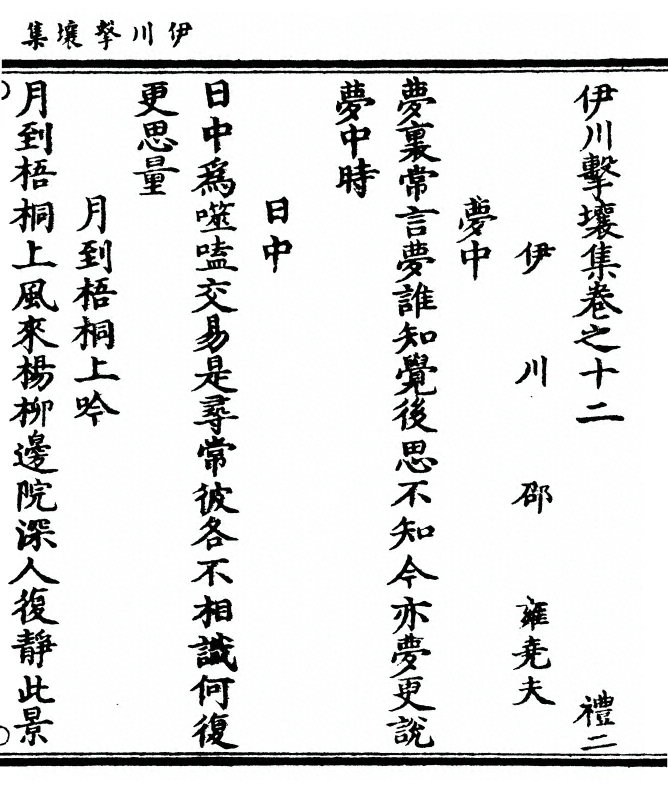 伊川擊壤集
伊川擊壤集卷之十二
禮二
伊川邵雍堯夫
夢中
夢裏常言夢誰知覺後思不知今亦夢更說
夢中時
日中
日中為噬嗑交易是尋常彼各不相識何復
更思量
月到梧桐上吟
月到梧桐上風來楊柳邊院深人復靜此景